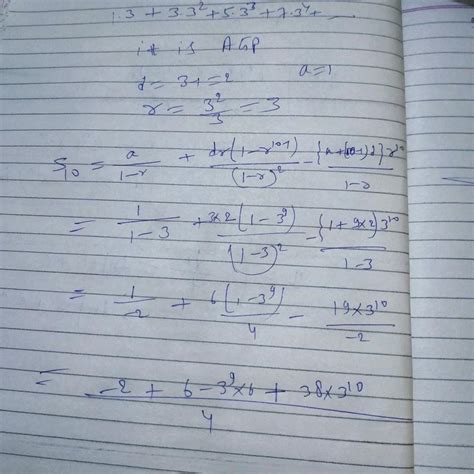 1.3 + 3.3² + 5.3³ + 7.3⁴ + ...
it is AGP
d = 3-1 = 2 a = 1
r = 3²/3 = 3
S₁₀ = a/(1-r) + dr(1-r¹⁰⁻¹)/(1-r)² - {a+(10-1)d}r¹⁰/(1-r)
= 1/(1-3) + 3×2(1-3⁹)/(1-3)² - {1+9×2}3¹⁰/(1-3)
= 1/-2 + 6(1-3⁹)/4 - 19×3¹⁰/-2
= (-2 + 6 - 3⁹×6 + 38×3¹⁰)/4